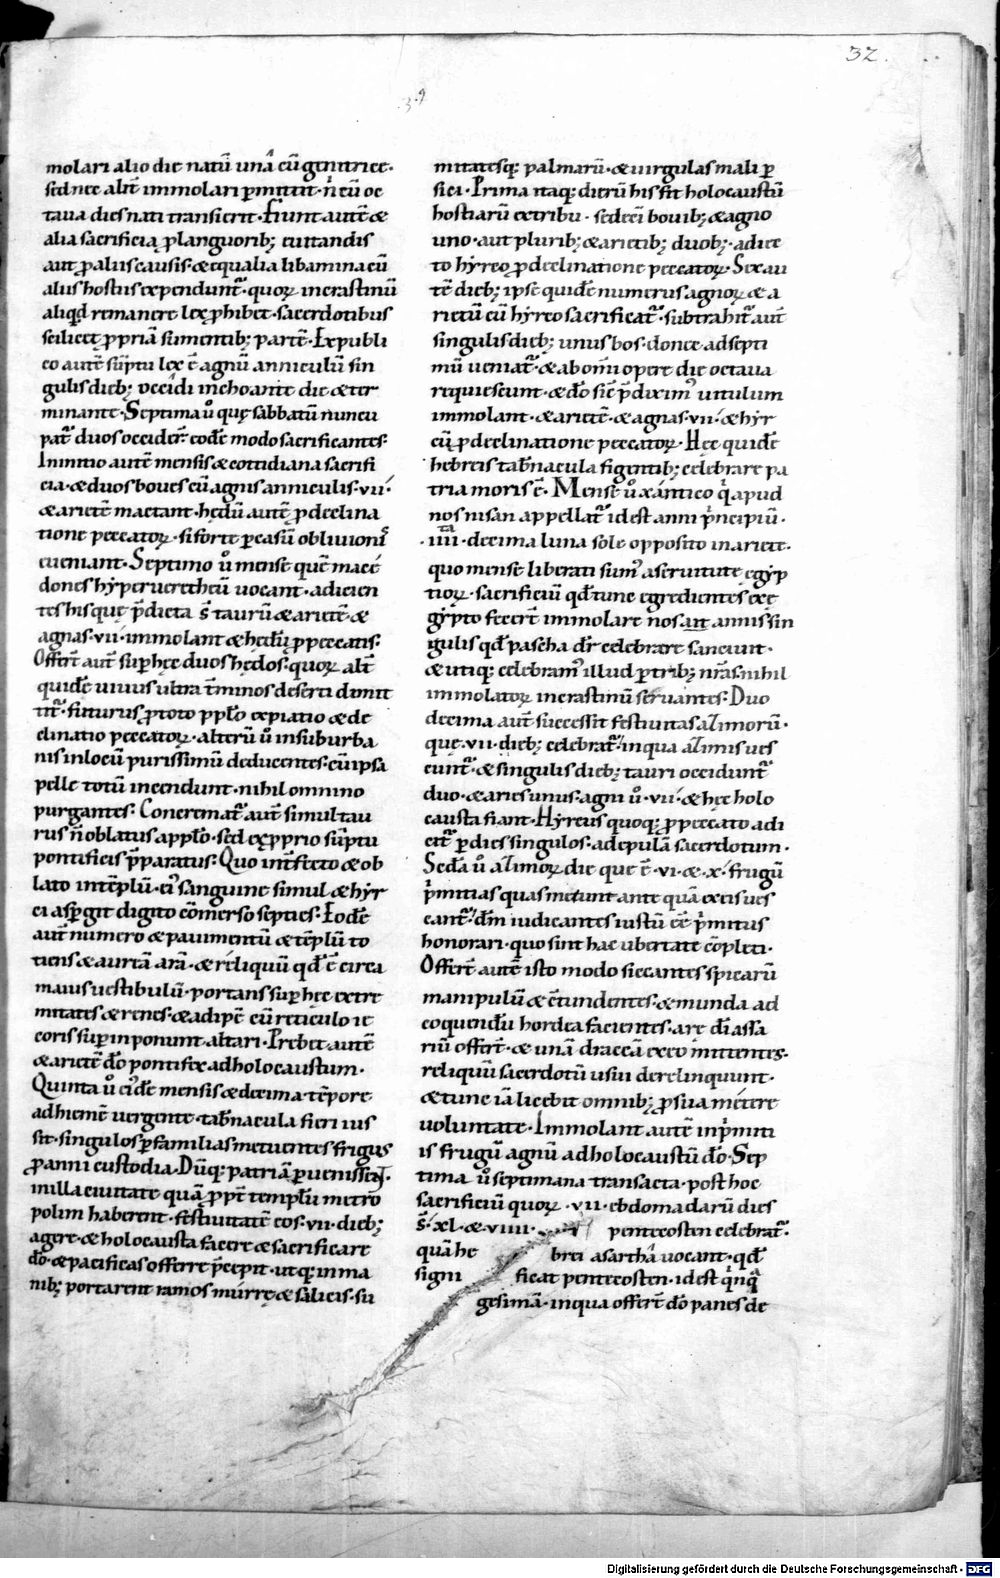 32.
39
molari alio die natū unā cū genitrice·
sed nec alit̄ immolari ꝑmittit· n̄ cū oc
taua dies nati transierit· Fiunt autē &
alia sacrificia ꝓ languorib; euitandis
aut ꝓ aliis causis· & equalia libamina cū
aliis hostiis expendunt᷑· quoꝝ in crastinū
aliqd remanere lex ꝓhibet· sacerdotibus
scilicet ꝓpriā sumentib; partē· Ex publi
co autē sūptu lex ē agnū anniculū sin
gulis dieb; occidi inchoante die & ter
minante· Septima ů quę sabbatū nuncu
pat᷑ duos occider̄ eodē modo sacrificantes·
In initio autē mensis & cotidiana sacrifi
cia· & duos boues cū agnis anniculis· vii·
& arietē mactant· hędū autē ꝓ declina
tione peccatoꝝ· si forte ꝑ casū obliuionis̄
eueniant· Septimo ů mense quē mace
dones hyperueretheū uocant· adicien
tes his quę p̄dicta s̄ taurū & arietē &
agnas· vii· immolant & hędū ꝓ peccatis·
Offert̄ aut̄ suꝑ hęc duos hędos· quoꝝ alt̄
quidē uiuus ultra t̄minos deserti dimit
tit᷑· futurus ꝓ toto ppło expiatio & de
clinatio peccatoꝝ· alterū ů in suburba
nis in locū purissimū deducentes· cū ipsa
pelle totū incendunt· nihil omnino
purgantes· Concremat᷑ aut̄ simul tau
rus n̄ oblatus a ppło· sed ex ꝓprio sūptu
pontificis p̄paratus· Quo int̄fecto & ob
lato in tēplū· ei' sanguine simul & hyr
ci asꝑgit digito cōmerso septies· Eodē
aut̄ numero & pauimentū & tēplū to
tiens & aureā arā· & reliquū qd ē circa
maius uestibulū· portans suꝑ hęc extre
mitates & renes· & adipē cū reticulo ie
coris suꝑ inponunt altari· Prebet autē
& arietē dō pontifex ad holocaustum·
Quinta ů ei'dē mensis & decima· tēpore
ad hiemē uergente· tab̄nacula fieri ius
sit· singulos ꝑ familias metuentes frigus
ꝓ anni custodia· Dūq; patriā ꝑuenissent·
in illa ciuitate quā ꝓpt̄ templū metro
polim haberent· festiuitatē eos· vii· dieb;
agere· & holocausta facere & sacrificare
dō· & pacificas offerre p̄cepit· utq; in ma
nib; portarent ramos mirrę & salicis· su
mitatesq; palmarū· & uirgulas mali ꝑ
sici· Prima itaq; dierū his fit holocaustū
hostiarū ex tribu· sedeci bouib; & agno
uno· aut plurib; & arietib; duob;· adiec
to hyrco ꝓ declinatione peccatoꝝ· Sex au
tē dieb; ipse quidē numerus agnoꝝ & a
rietū cū hyrco sacrificat᷑· subtrahit᷑ aut̄
singulis dieb; unus bos· donec ad septi
mū ueniat᷑· & ab omī opere die octaua
requiescunt· & dō sic p̄dixim' uitulum
immolant· & arietē· & agnas· vii· & hyr
cū ꝓ declinatione peccatoꝝ· Hęc quidē
hebreis tab̄nacula figentib; celebrare pa
tria moris ē· Mense ů xántico q̇ apud
nos nisan appellat᷑ id est anni ṗncipiū·
·iiii· decima luna sole opposito in ariete·
quo mense liberati sum' a seruitute egyp
tioꝝ· sacrificiū qd tunc egredientes ex ę
gypto fecer̄t immolare nos an annis sin
gulis qd pascha dr̄ celebrare sanciunt·
& utiq; celebram' illud ꝑ trib; nr̄as· nihil
immolatoꝝ in crastinū seruantes· Duo
decima aut̄ successit festiuitas azimorū·
quę· vii· dieb; celebrat᷑· in qua azimis ues
cunt᷑· & singulis dieb; tauri occidunt᷑
duo· & aries unus· agni ů· vii· & hęc holo
causta fiant· Hyrcus quoq; ꝓ peccato adi
cit᷑ ꝑ dies singulos· ad epulā sacerdotum·
Sedā ů azimoꝝ die que ē· vi· & · x· frugū
ṗmitias quas metunt ante quā ex eis ues
cant᷑· dm̄ iudicantes iustū eē ṗmitus
honorari· quo sint hac ubertate cōpleti·
Offert̄ autē isto modo siccantes spicarū
manipulū & c̄tundentes· & munda ad
coquendū hordea facientes· arę di̇ assa
riū offert̄· & unā draccā ex eo mittentes·
reliquū sacerdotū usui derelinquunt·
& tunc iā licebit omnib; ꝓ sua metere
uoluntate· Immolant autē in ṗmiti
is frugū agnū ad holocaustū dō· Sep
tima ů septimana transacta· post hoc
sacrificiū quoꝝ· vii· ebdomadarū dies
s̄· xl· & viiii· pentecosten celebrat᷑·
quā he brei asarthā uocant· qd
signi ficat pentecosten· id est q̇nq̇
gesimā· in qua offert̄ dō panes de
Digitalisierung gefördert durch die Deutsche Forschungsgemeinschaft - DFG